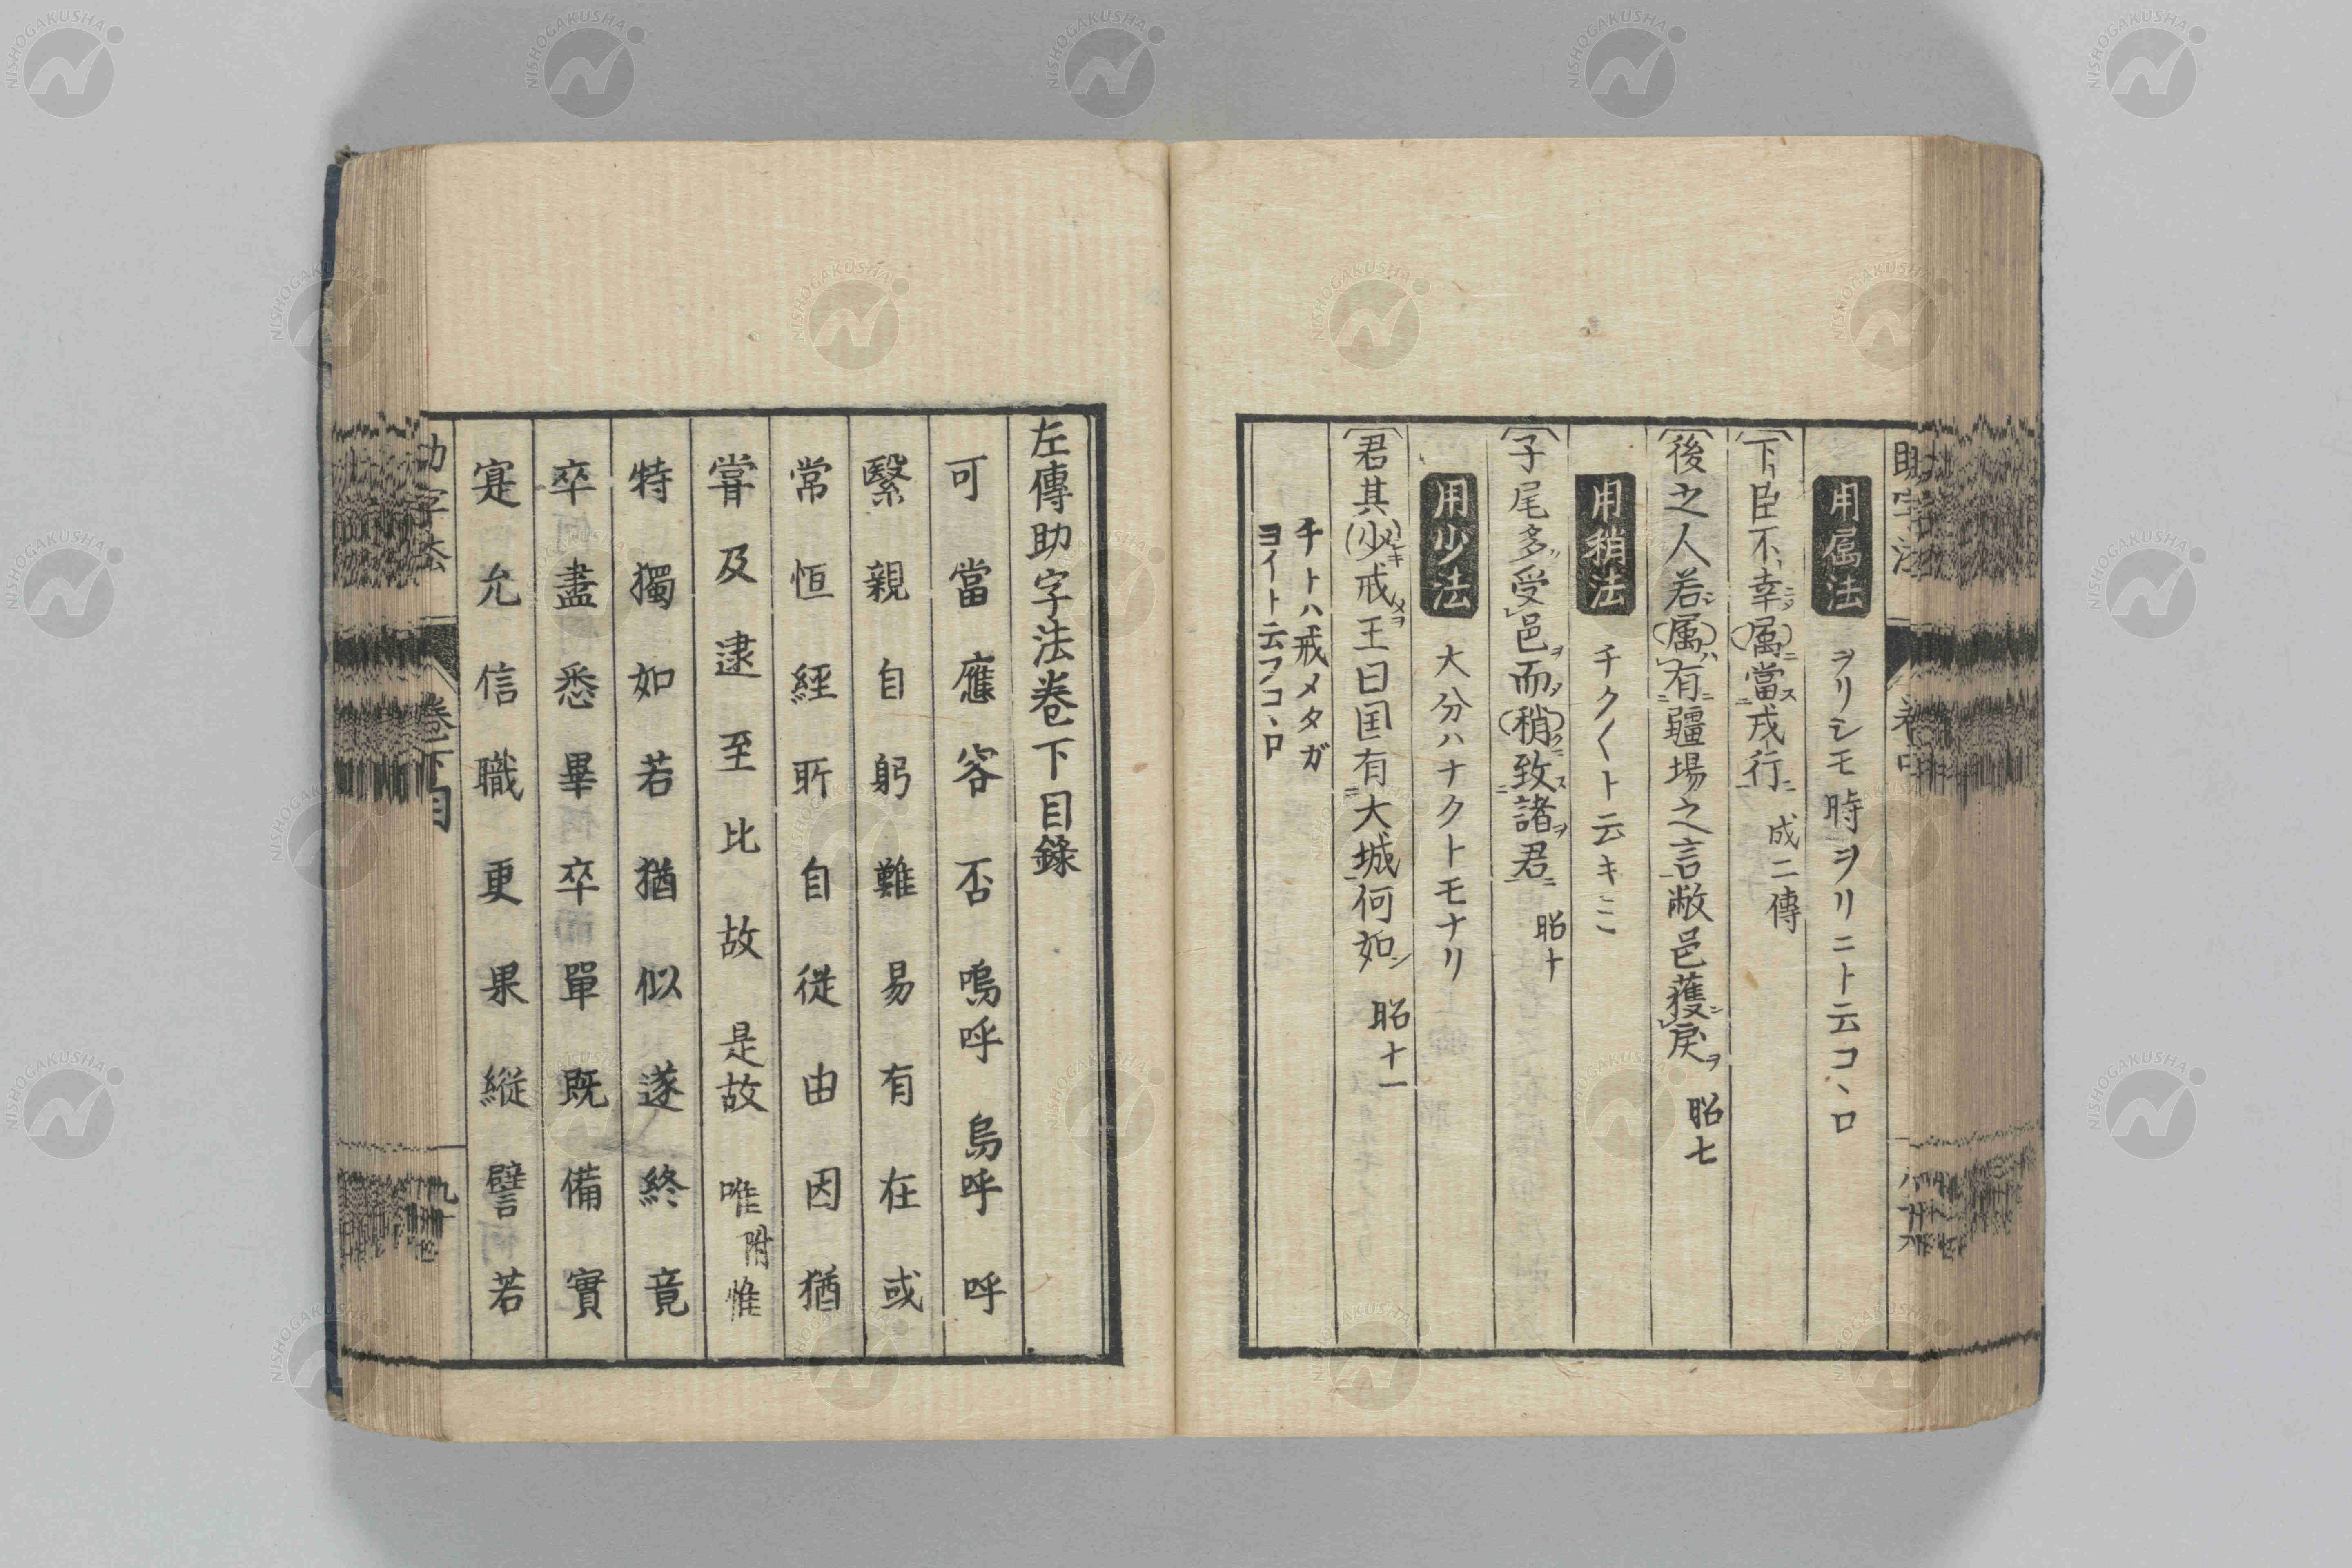 用属法 ヲリシモ時ヲリニト云コヽロ
下臣不幸属當戎行 成二傳
後之人若属有疆場之言敝邑獲戻 昭七
用稍法 チク〱ト云キミ
子尾多受邑而稍致諸君 昭十
用少法 大分ハナクトモナリ
君其少戒王曰国有大城何如 昭十一
チトハ戒メタガ
ヨイト云フコヽロ
左傳助字法巻下目録
可 當 應 容 否 嗚呼 烏呼 呼
繄 親 自 躬 難 易 有 在 或
常 恒 經 所 自 從 由 因 猶
嘗 及 逮 至 比 故 是故 唯 附惟
特 獨 如 若 猶 似 遂 終 竟
卒 盡 悉 畢 卒 單 既 備 實
寔 允 信 職 更 果 縦 譬 若
助字法 巻下目
NISHOGAKUSHA